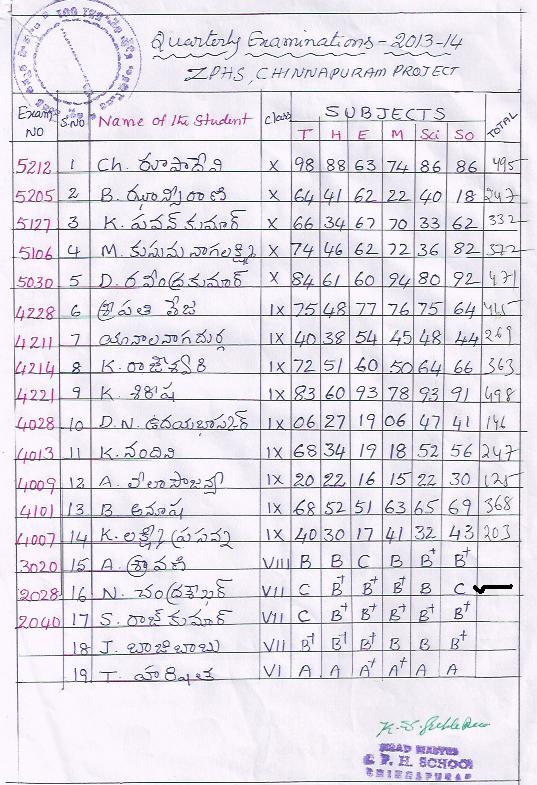 Quarterly Examinations - 2013-14
ZPHS, CHINNAPURAM PROJECT
Exam NO S.NO Name of the Student Class SUBJECTS TOTAL
T H E M Sci So
5212 1 Ch. రూపాదేవి X 98 88 63 74 86 86 495
5205 2 B. ఝాన్సీరాణి X 64 41 62 22 40 18 247
5127 3 K. పవన్ కుమార్ X 66 34 67 70 33 62 332
5106 4 M. కుసుమ నాగలక్ష్మి X 74 46 62 72 36 82 372
5030 5 D. రవీంద్రకుమార్ X 84 61 60 94 80 92 471
4228 6 శ్రీపతి తేజ IX 75 48 77 76 75 64 415
4211 7 యనాలనాగదుర్గ IX 40 38 54 45 48 44 269
4214 8 K. రాజేశ్వరి IX 72 51 60 50 64 66 363
4221 9 K. శిరీష IX 83 60 93 78 93 91 498
4028 10 D.N. ఉదయభాస్కర్ IX 06 27 19 06 47 41 146
4013 11 K. నందిని IX 68 34 19 18 52 56 247
4009 12 A. IX 20 22 16 15 22 30 125
4101 13 B. అనూష IX 68 52 51 63 65 69 368
4007 14 K. లక్ష్మీ ప్రసన్న IX 40 30 17 41 32 43 203
3020 15 A. శ్రావణి VIII B B C B B+ B+
2028 16 N. చంద్రశేఖర్ VII C B+ B+ B+ B C
2040 17 S. రాజ్ కుమార్ VII C B+ B+ B+ B+ B+
18 J. బాజిబాబు VII B+ B+ B+ B B B+
19 T. హర్షిత VI A A A+ A+ A A
HEAD MASTER
Z. P. H. SCHOOL
CHINNAPURAM